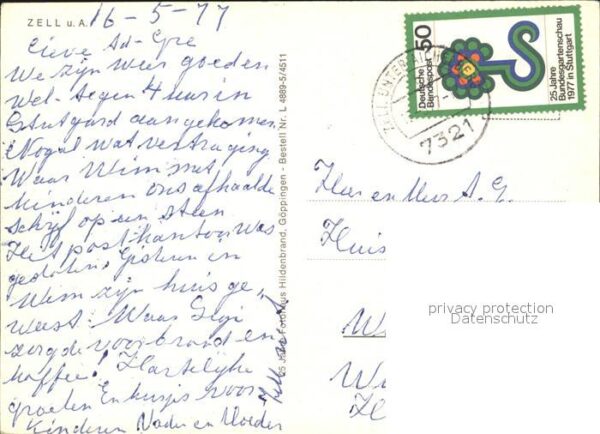 ZELL u. A.
16-5-77
Lieve Ad-Gre
We zijn weer goeden
Wel-tegen 4 uur in
Stutgard aangekomen
Nogal wat vertraging
Waar Wim met
kinderen ons afhaalde
Schijf op een steen
Het postkantoor was
gesloten. Gisteren in
Wim zijn huis ge„
weest. Waar Gigi
zorgde voor brood en
koffie! Hartelijke
groeten En kusjes voor
Kinderen Vader en Moeder
Fotohaus Hildenbrand, Göppingen - Bestell Nr. L 4889-5/4511
50
Deutsche Bundespost
25 Jahre
Bundesgartenschau
1977 in Stuttgart
7321
Heer en Mevr A. G.
Huis
privacy protection
Datenschutz